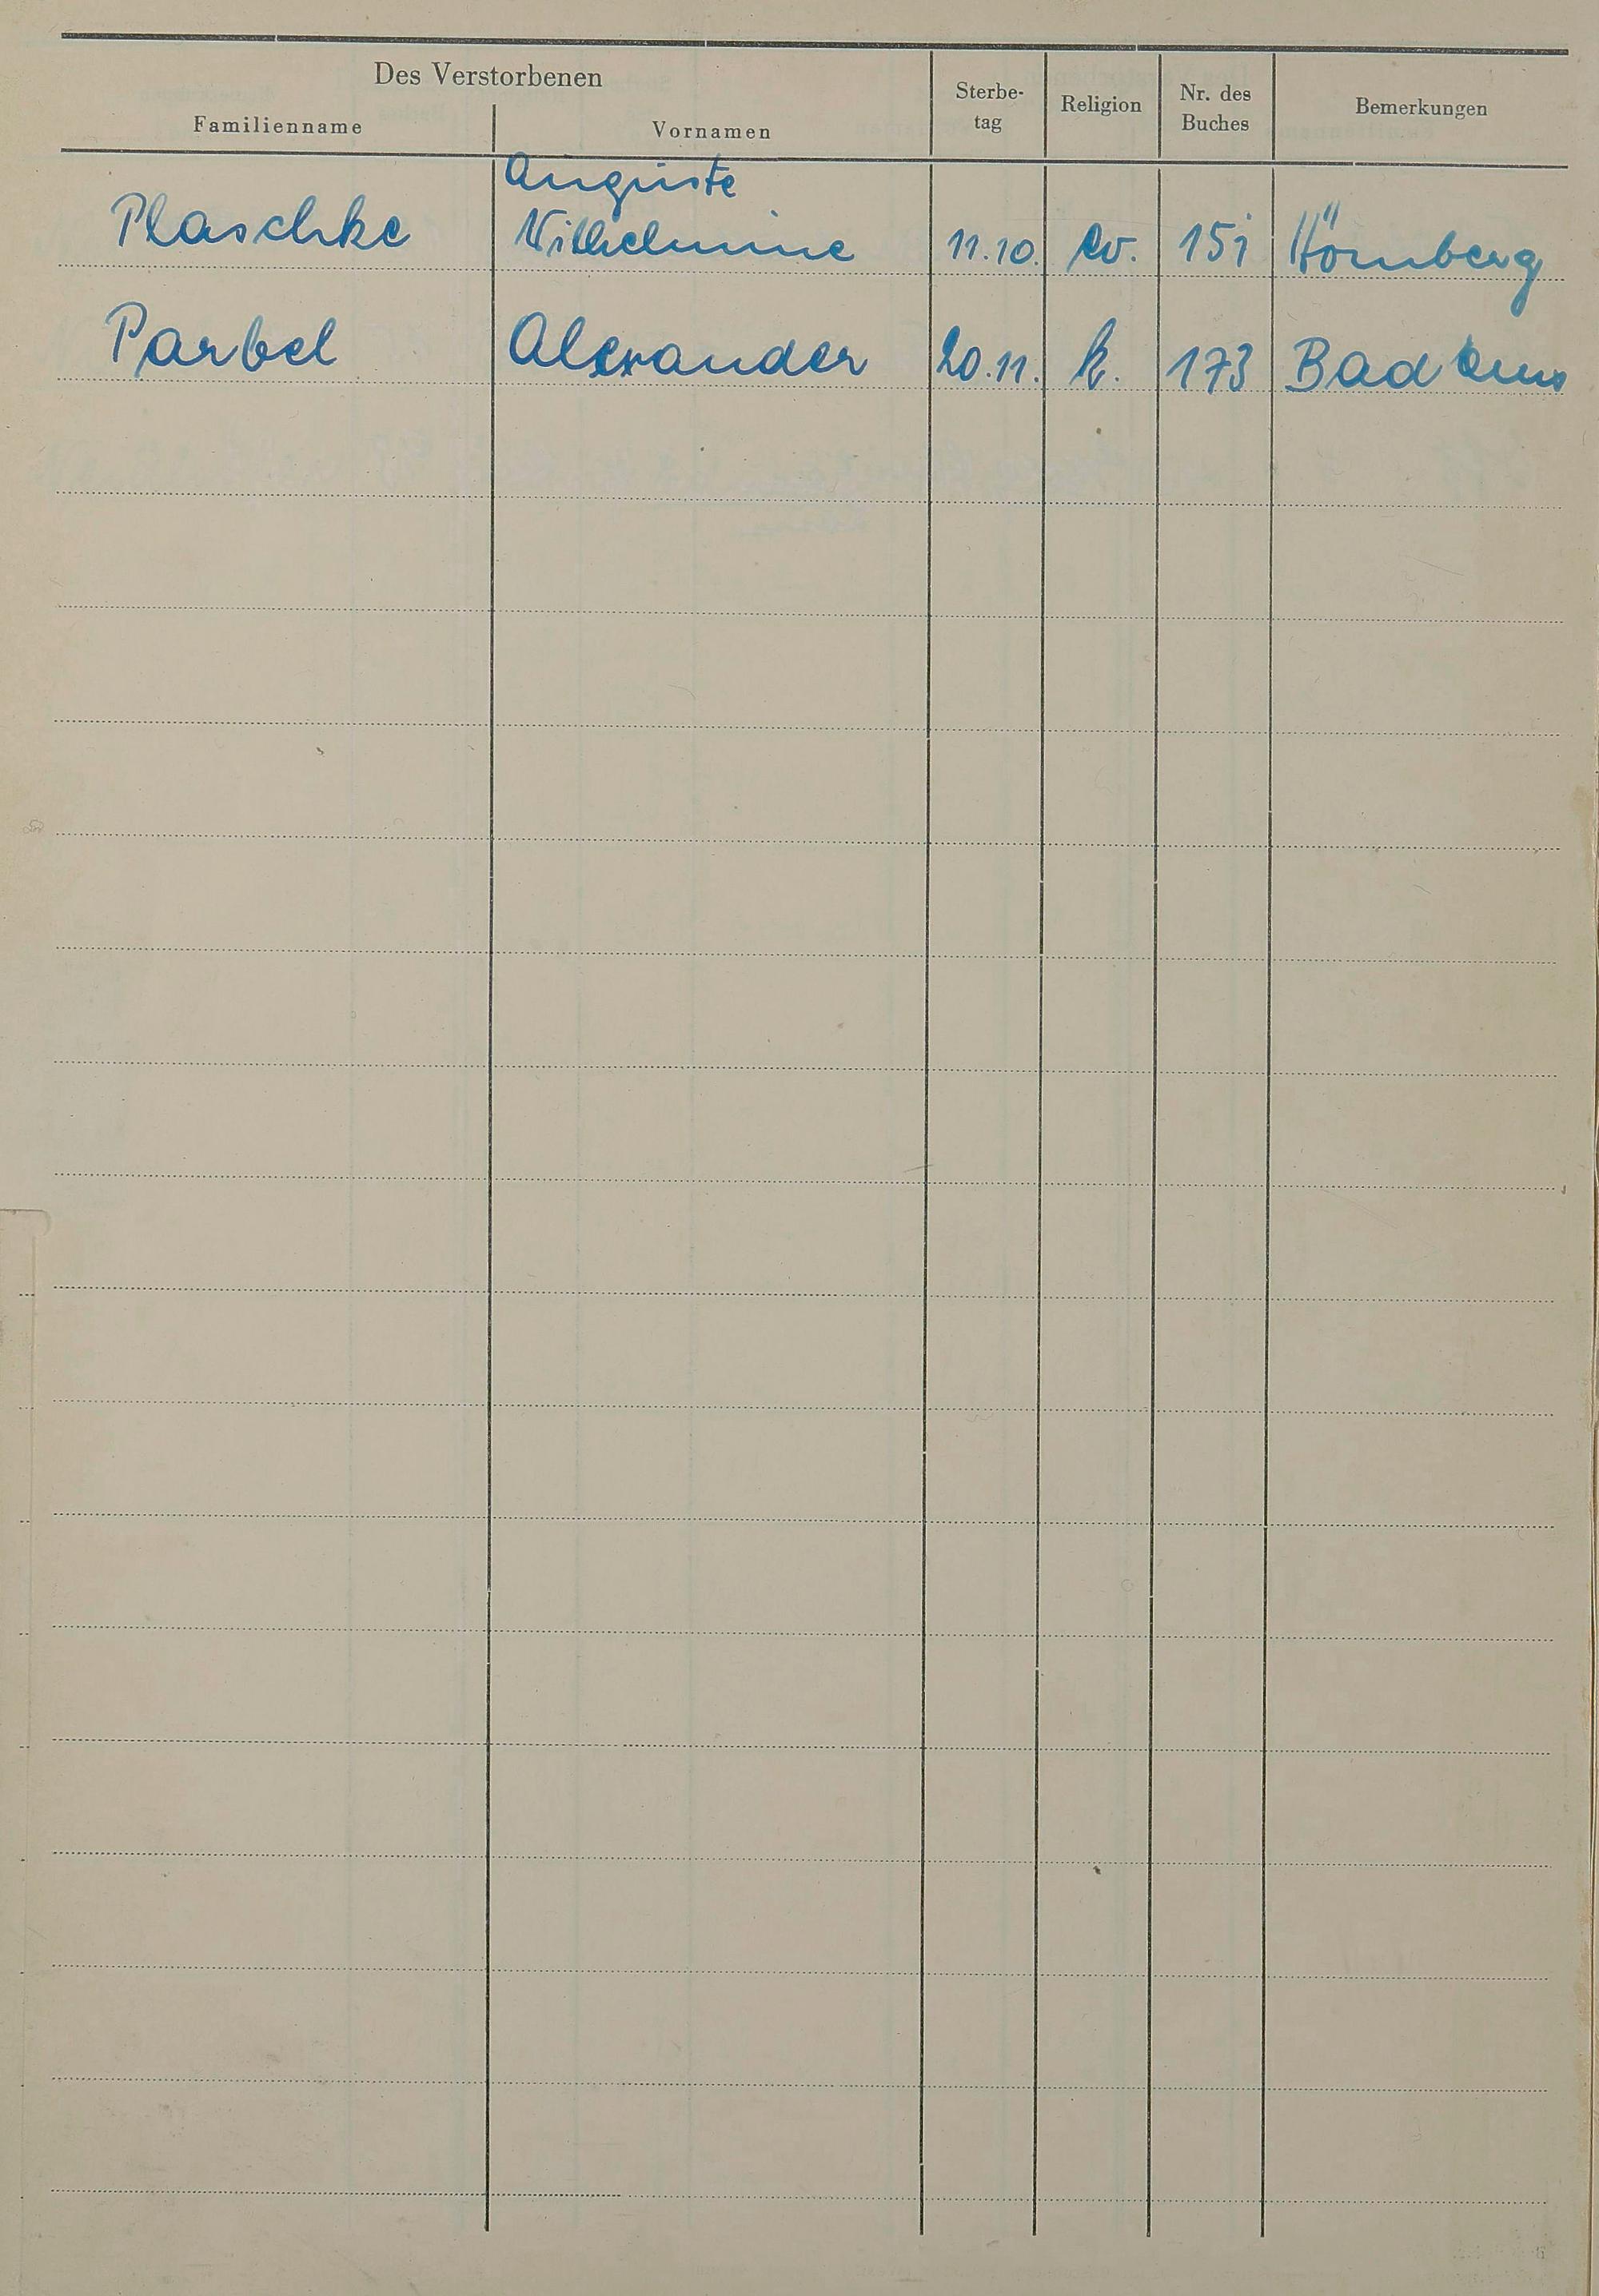 Des Verstorbenen
Familienname Vornamen Sterbe- tag Religion Nr. des Buches Bemerkungen
Auguste
Plaschke Wilhelmine 11.10. ev. 151 Hömberg
Parbel Alexander 20.11. k. 173 Bad Ems